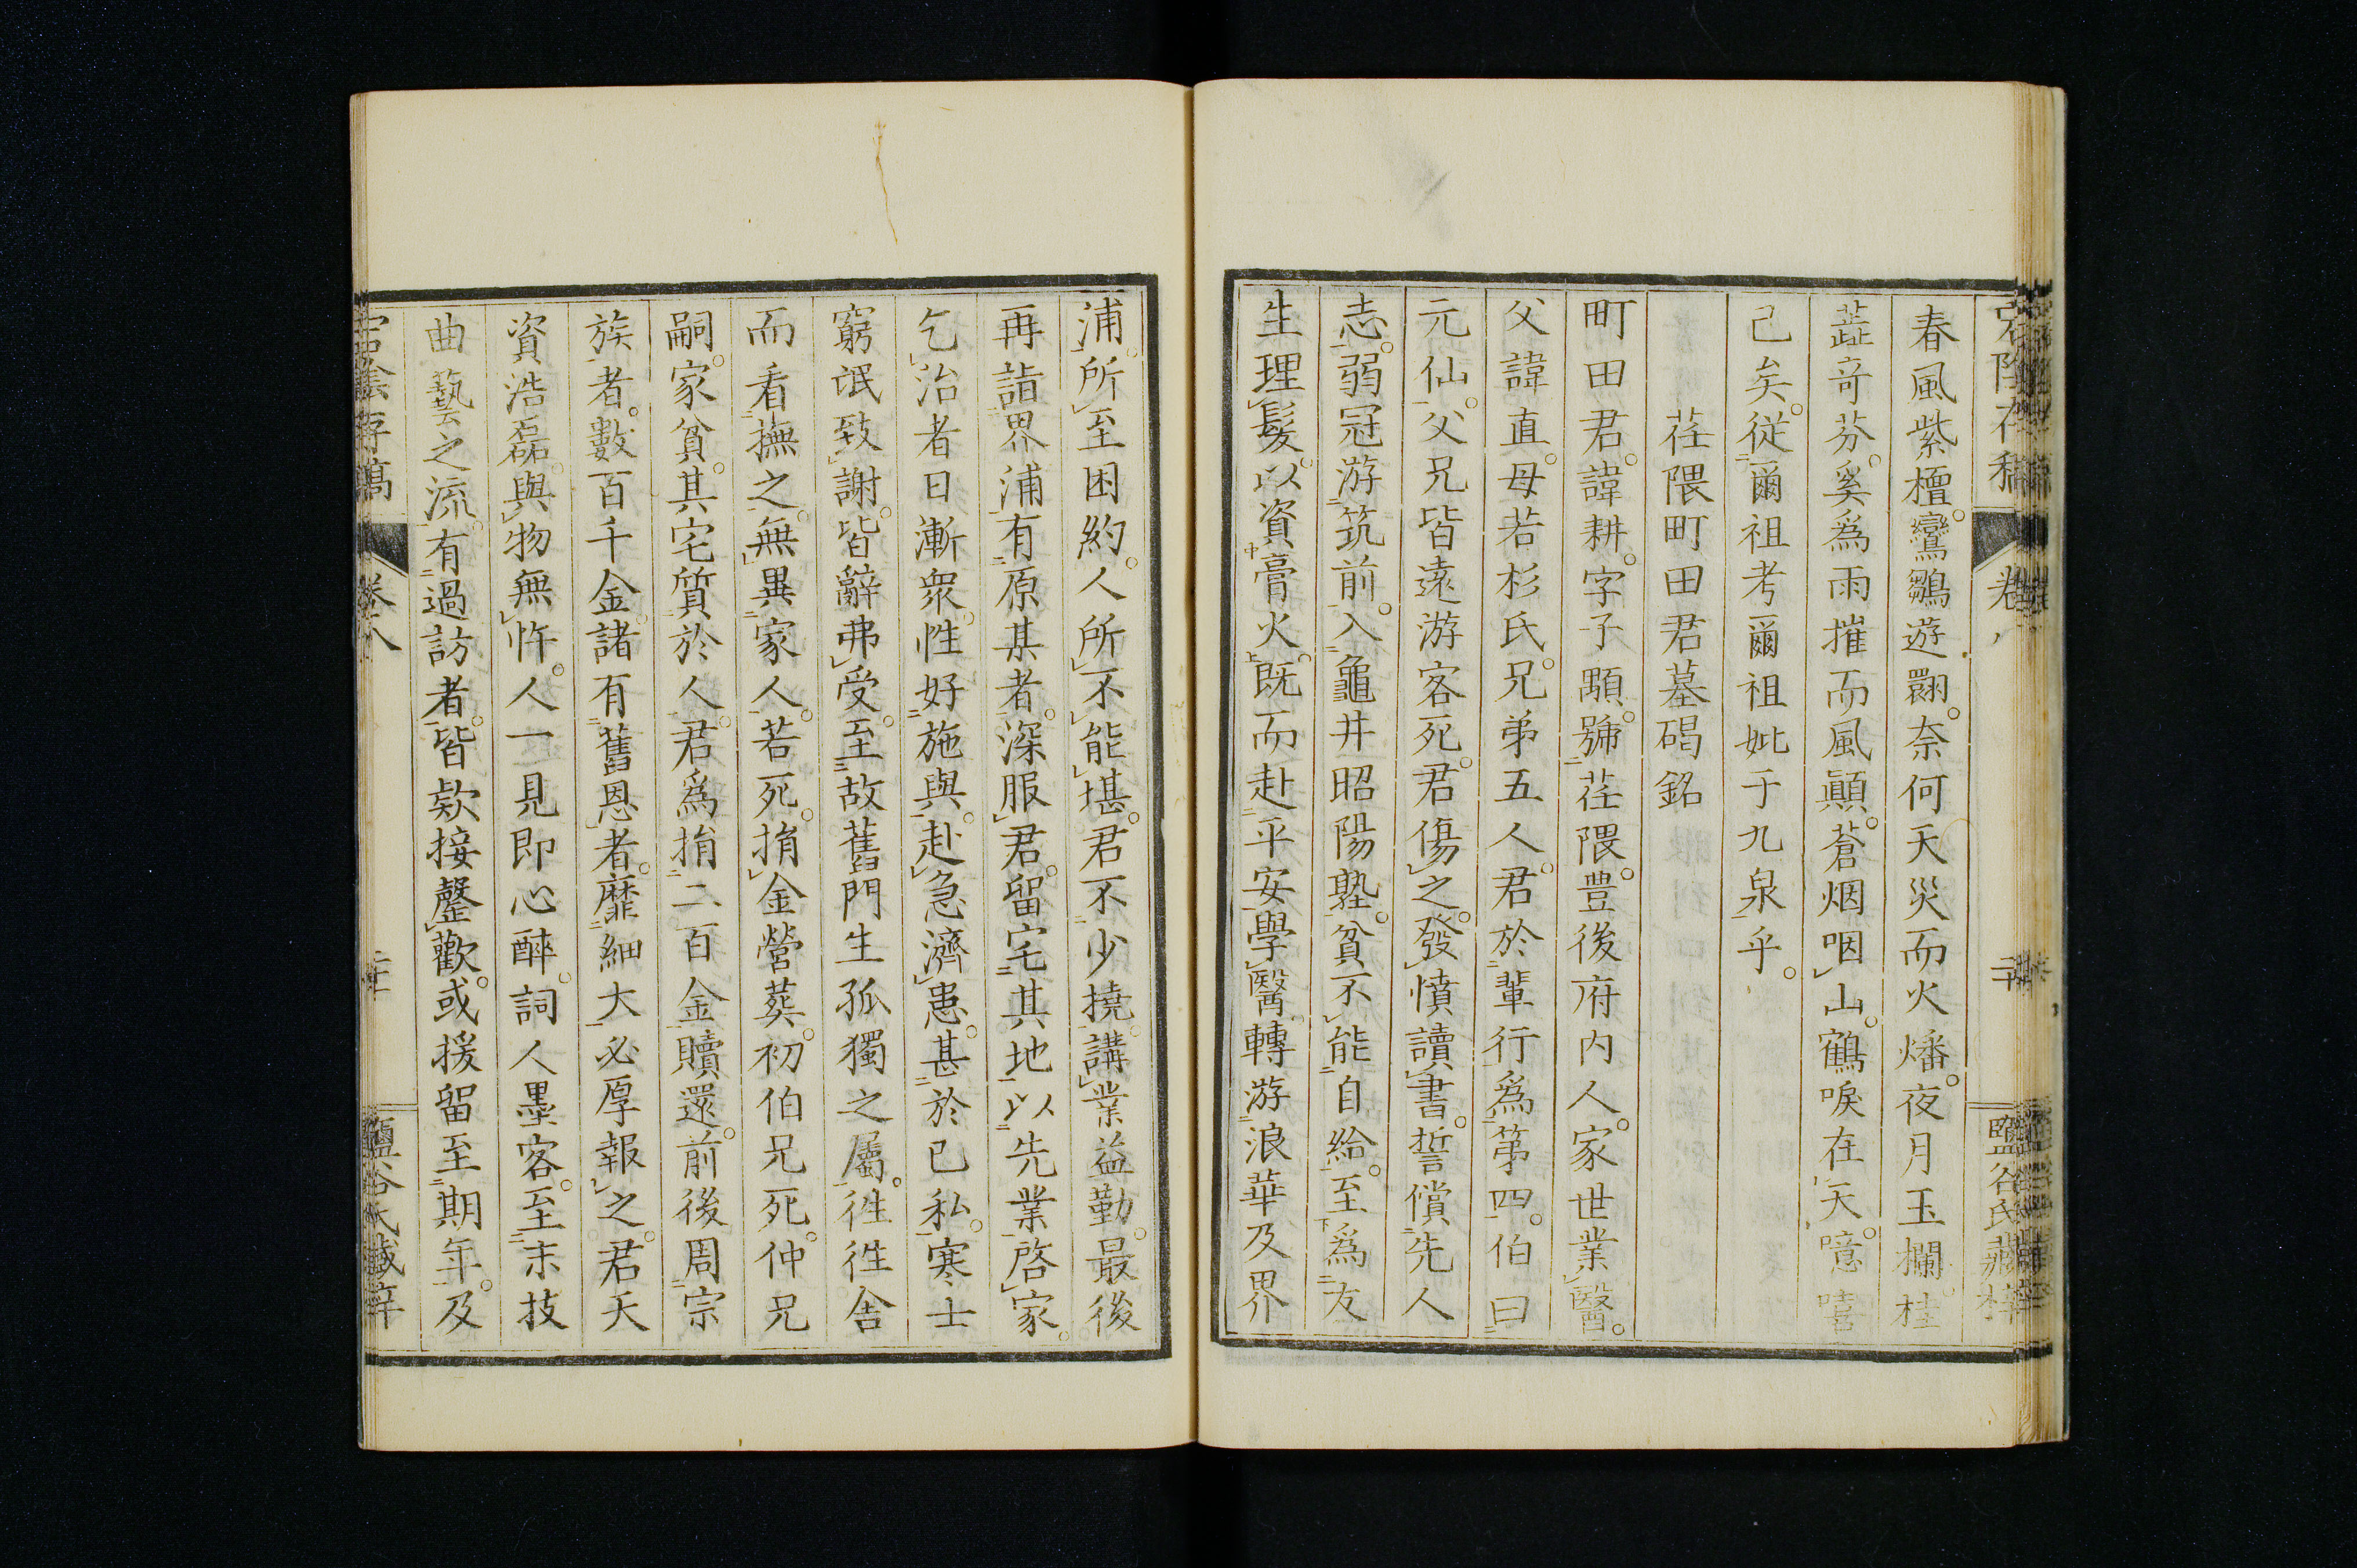 春風紫檀。鸞鶵遊翾。奈何天災而火燔。夜月玉欄。桂
蘂奇芬。奚爲雨摧而風顚。蒼烟咽山。鶴唳在天。噫嘻
己矣。從爾祖考爾祖妣于九泉乎。
荏隈町田君墓碣銘
町田君。諱耕。字子顯。號荏隈。豊後府内人。家世業醫。
父諱直。母若杉氏。兄弟五人。君於輩行爲第四。伯曰
元仙。父兄皆遠游客死。君傷之。發憤讀書。誓償先人
志。弱冠游筑前。入龜井昭陽塾。貧不能自給。至爲友
生理髮。以資膏火。既而赴平安學醫轉游浪華及界
浦。所至困約。人所不能堪。君不少撓。講業益勤。最後
再詣界浦有原某者。深服君。留宅其地以先業啓家。
乞治者日漸衆。性好施與。赴急濟患。甚於已私。寒士
窮氓致謝。皆辭弗受。至故舊門生孤獨之屬。往往舍
而看撫之。無異家人。若死。捐金營葬。初伯兄死。仲兄
嗣。家貧。其宅質於人。君爲捐二百金贖還。前後周宗
族者。數百千金。諸有舊恩者。靡細大必厚報之。君天
資浩磊。與物無忤。人一見即心醉。詞人墨客。至末技
曲藝之流。有過訪者。皆欵接罄歡。或援留至期年。及
宕陰存稿
卷八
二十一
鹽谷氏藏梓